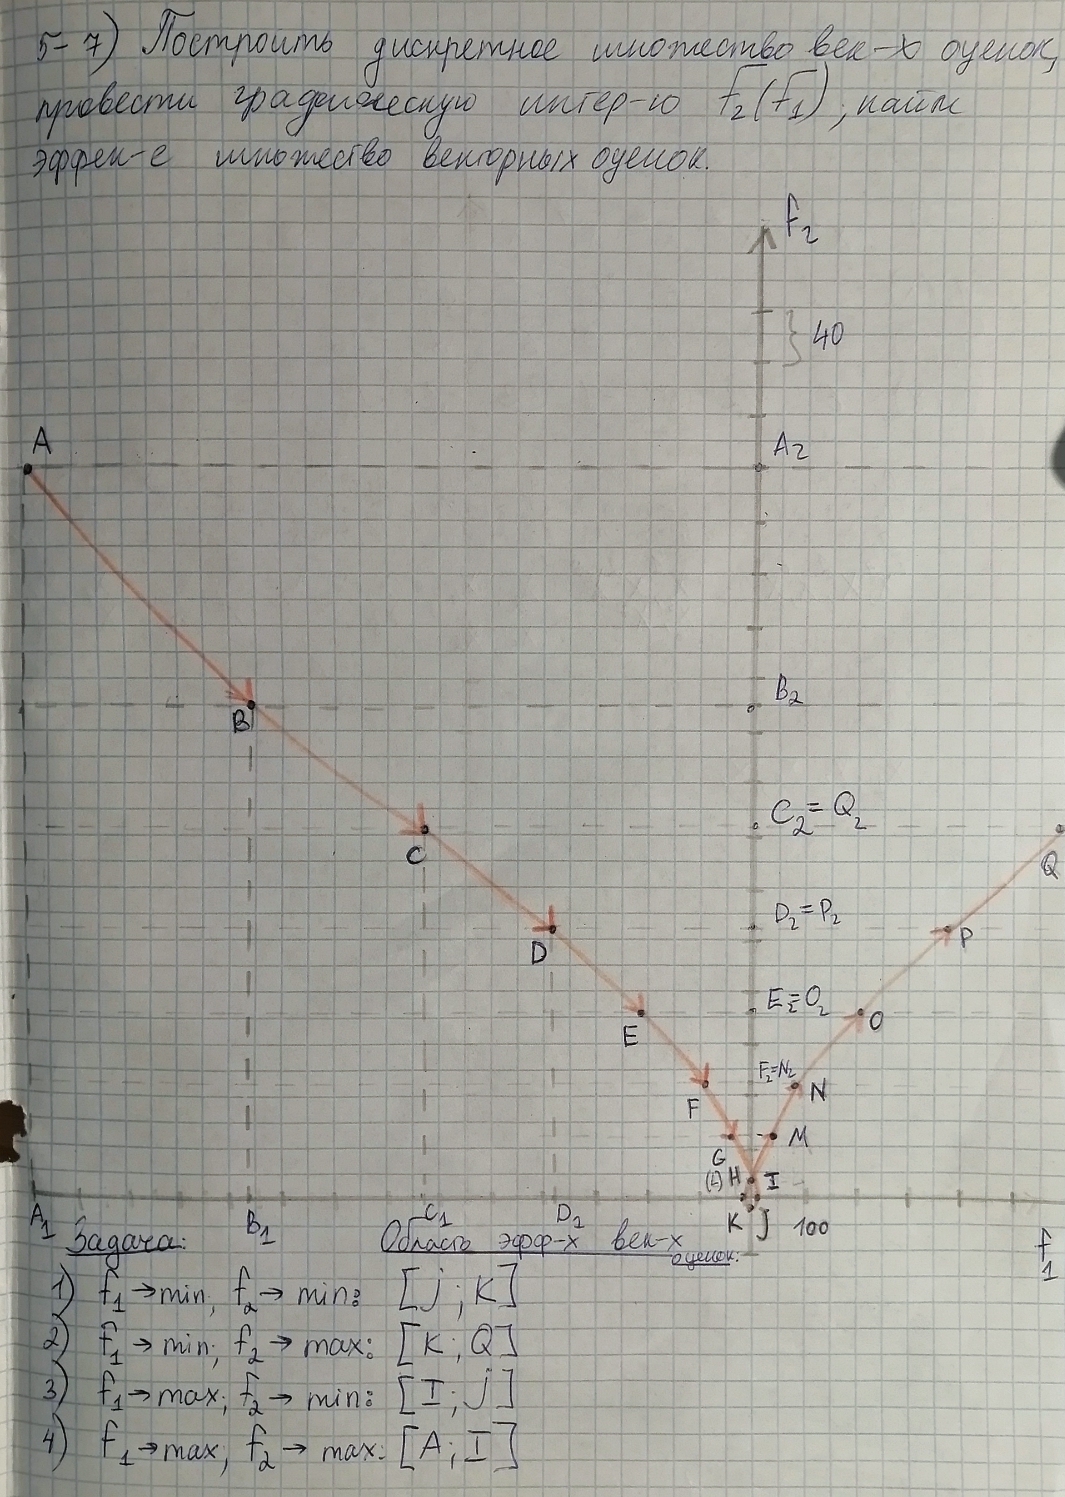 5-7) Построить дискретное множество век-х оценок,
провести графическую интер-ю f₂(f₁), найти
эффек-е множество векторных оценок.
f₂
40
A
A₂
B₂
B
C₂ = Q₂
C
Q
D₂ = P₂
D
P
E₂ = O₂
E
O
F₂=N₂
F
N
G
M
(L) H
I
K
J
100
A₁
B₁
C₁
D₂
f₁
Задача:
Область эфф-х век-х
оценок:
1) f₁ → min, f₂ → min: [j ; K]
2) f₁ → min; f₂ → max: [K ; Q]
3) f₁ → max; f₂ → min: [I ; j]
4) f₁ → max, f₂ → max: [A ; I]